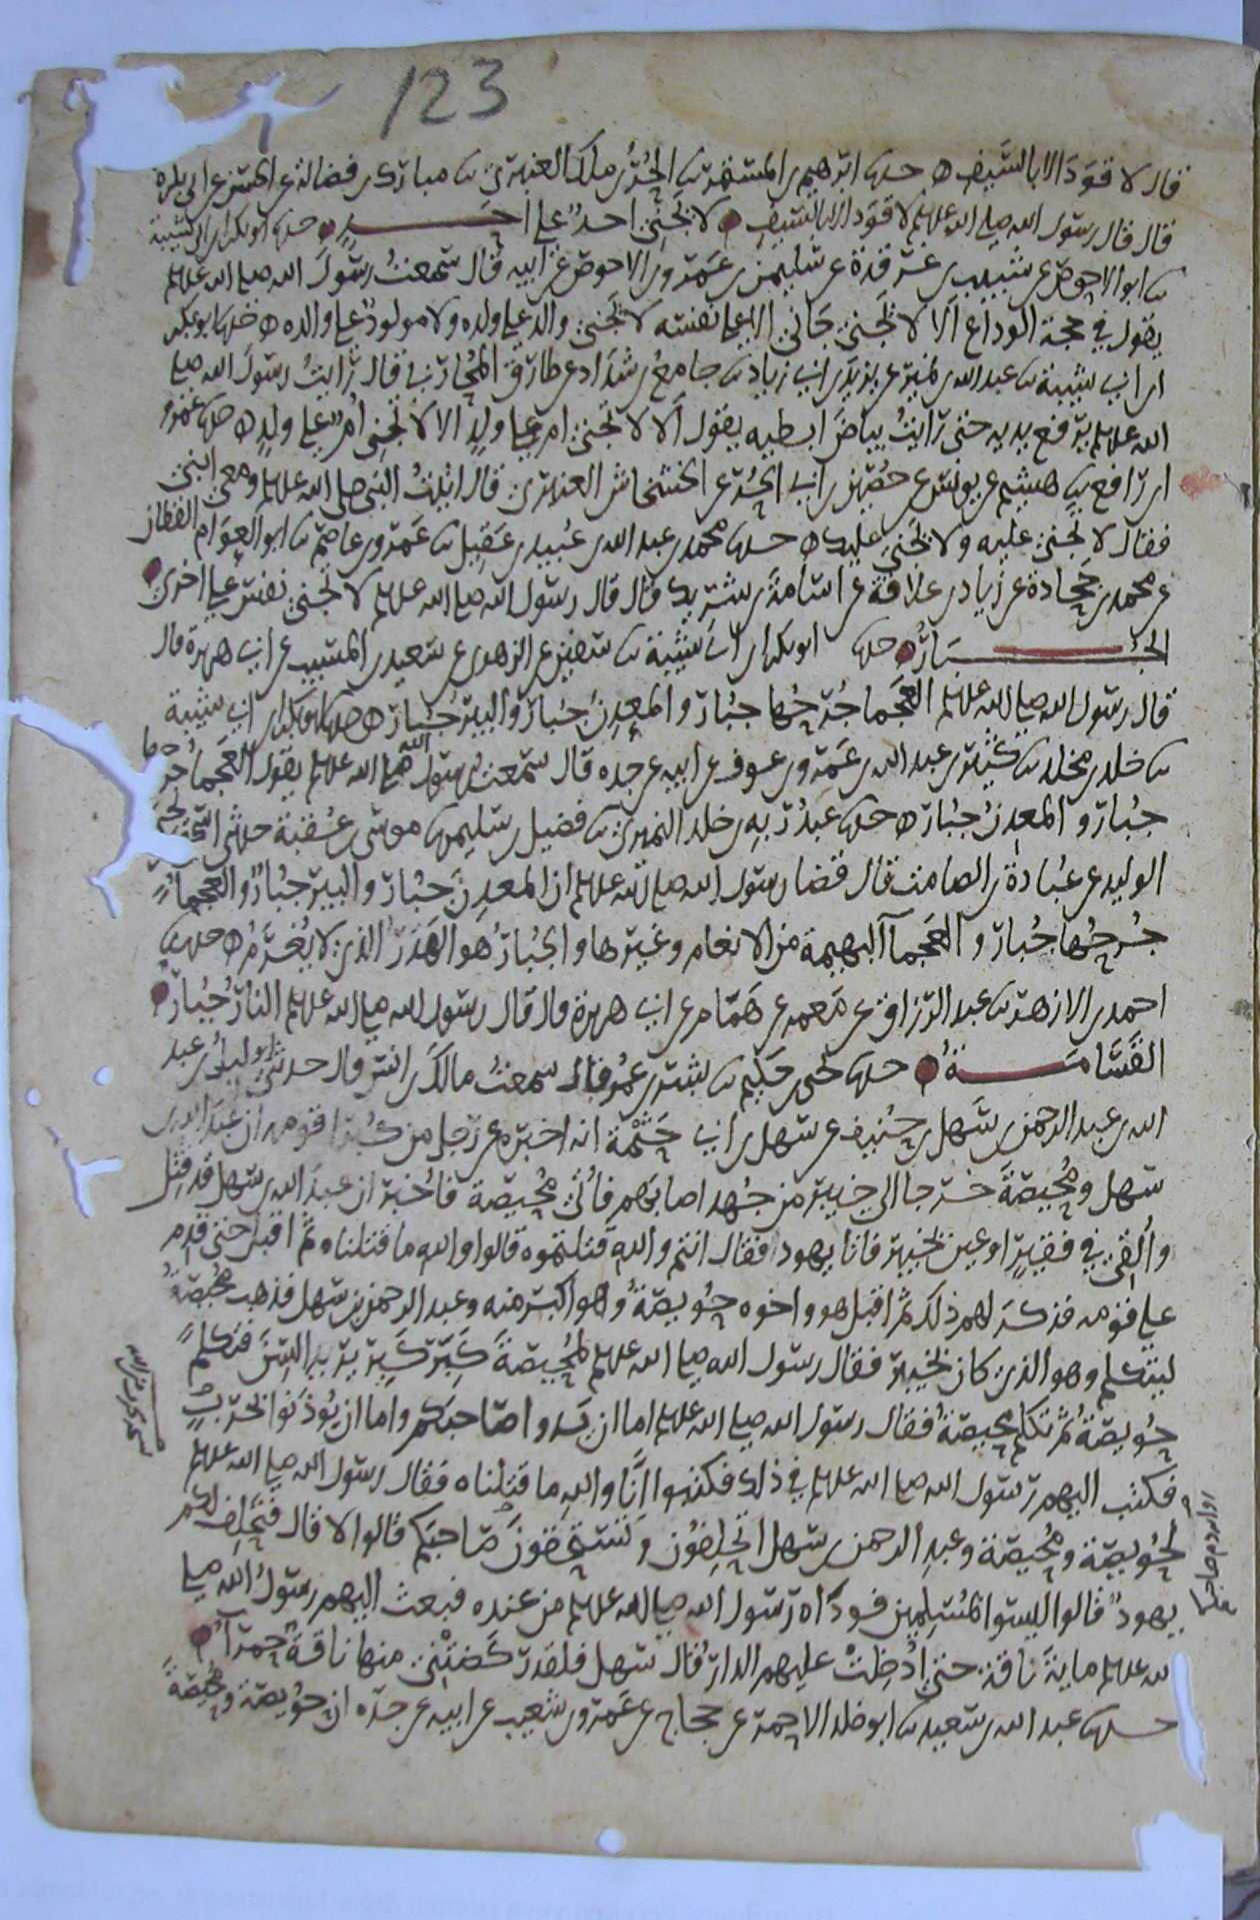 123
قال لا قود الا بالسيف ه حدثنا ابرهيم بن المستمر ثنا الحر بن ملك العنبري ثنا مبارك بن فضالة عن الحسن عن ابي بكرة
قال قال رسول الله صلى الله عليه وسلم لا قود الا بالسيف لا يجني احد على احد حدثنا ابو بكر بن ابي شيبة
ثنا ابو الاحوص عن شبيب بن غرقدة عن سليمن بن عمرو بن الاحوص عن ابيه قال سمعت رسول الله صلى الله عليه وسلم
يقول في حجة الوداع الا لا يجني جاني الا على نفسه لا يجني والد على ولده ولا مولود على والده ه حدثنا ابو بكر
ابن ابي شيبة ثنا عبد الله بن نمير عن يزيد بن ابي زياد ثنا جامع بن شداد عن طارق المحاربي قال رايت رسول الله صلى
الله عليه وسلم يرفع يديه حتى رايت بياض ابطيه يقول الا لا تجني ام على ولد الا لا تجني ام على ولد ه حدثنا عمرو
ابن رافع ثنا هشيم عن يونس عن حصين بن ابي الحر عن الخشخاش العنبري قال اتيت النبي صلى الله عليه وسلم ومعي ابني
فقال لا تجني عليه ولا يجني عليك ه حدثنا محمد بن عبد الله بن عبيد بن عقيل ثنا عمرو بن عاصم ثنا ابو العوام القطان
عن محمد بن جحادة عن زياد بن علاقة عن اسامة بن شريك قال قال رسول الله صلى الله عليه وسلم لا تجني نفس على اخرى
الجبار ه حدثنا ابو بكر بن ابي شيبة ثنا سفين عن الزهري عن سعيد بن المسيب عن ابي هريرة قال
قال رسول الله صلى الله عليه وسلم العجما جرحها جبار والمعدن جبار والبير جبار ه حدثنا ابو بكر بن ابي شيبة
ثنا خلد بن مخلد ثنا كثير بن عبد الله بن عمرو بن عوف عن ابيه عن جده قال سمعت رسول الله صلى الله عليه وسلم يقول العجما جرحها
جبار والمعدن جبار ه حدثنا عبد ربه بن خلد النميري ثنا فضيل بن سليمن ثنا موسى بن عقبة حدثني اسحق بن يحيى
الوليد عن عبادة بن الصامت قال قضا رسول الله صلى الله عليه وسلم ان المعدن جبار والبير جبار والعجما
جرحها جبار والعجما البهيمة من الانعام وغيرها والجبار هو الهدر الذي لا يغرم ه حدثنا
احمد بن الازهر ثنا عبد الرزاق عن معمر عن همام عن ابي هريرة قال قال رسول الله صلى الله عليه وسلم النار جبار
القسامة حدثنا يحيى بن حكيم ثنا بشر بن عمر قال سمعت مالك بن انس قال حدثني ابو ليلى بن عبد
الله بن عبد الرحمن بن سهل بن حنيف عن سهل بن ابي حثمة انه اخبره عن رجل من كبرا قومه ان عبد الله بن
سهل ومحيصة خرجا الى خيبر من جهد اصابهم فاتي محيصة فاخبر ان عبد الله بن سهل قد قتل
والقي في فقير او عين بخيبر فاتا يهود فقال انتم والله قتلتموه قالوا والله ما قتلناه ثم اقبل حتى قدم
على قومه فذكر لهم ذلك ثم اقبل هو واخوه حويصة وهو اكبر منه وعبد الرحمن بن سهل فذهب محيصة
ليتكلم وهو الذي كان بخيبر فقال رسول الله صلى الله عليه وسلم لمحيصة كبر كبر يريد السن فتكلم
حويصة ثم تكلم محيصة فقال رسول الله صلى الله عليه وسلم اما ان يدوا صاحبكم واما ان يوذنوا بحرب
فكتب اليهم رسول الله صلى الله عليه وسلم في ذلك فكتبوا انا والله ما قتلناه فقال رسول الله صلى الله عليه وسلم
لحويصة ومحيصة وعبد الرحمن بن سهل اتحلفون وتستحقون دم صاحبكم قالوا لا قال فتحلف لكم
يهود قالوا ليسوا بمسلمين فوداه رسول الله صلى الله عليه وسلم من عنده فبعث اليهم رسول الله صلى
الله عليه وسلم ماية ناقة حتى ادخلت عليهم الدار قال سهل فلقد ركضتني منها ناقة حمرآ
حدثنا عبد الله بن سعيد ثنا ابو خلد الاحمر عن حجاج عن عمرو بن شعيب عن ابيه عن جده ان حويصة ومحيصة